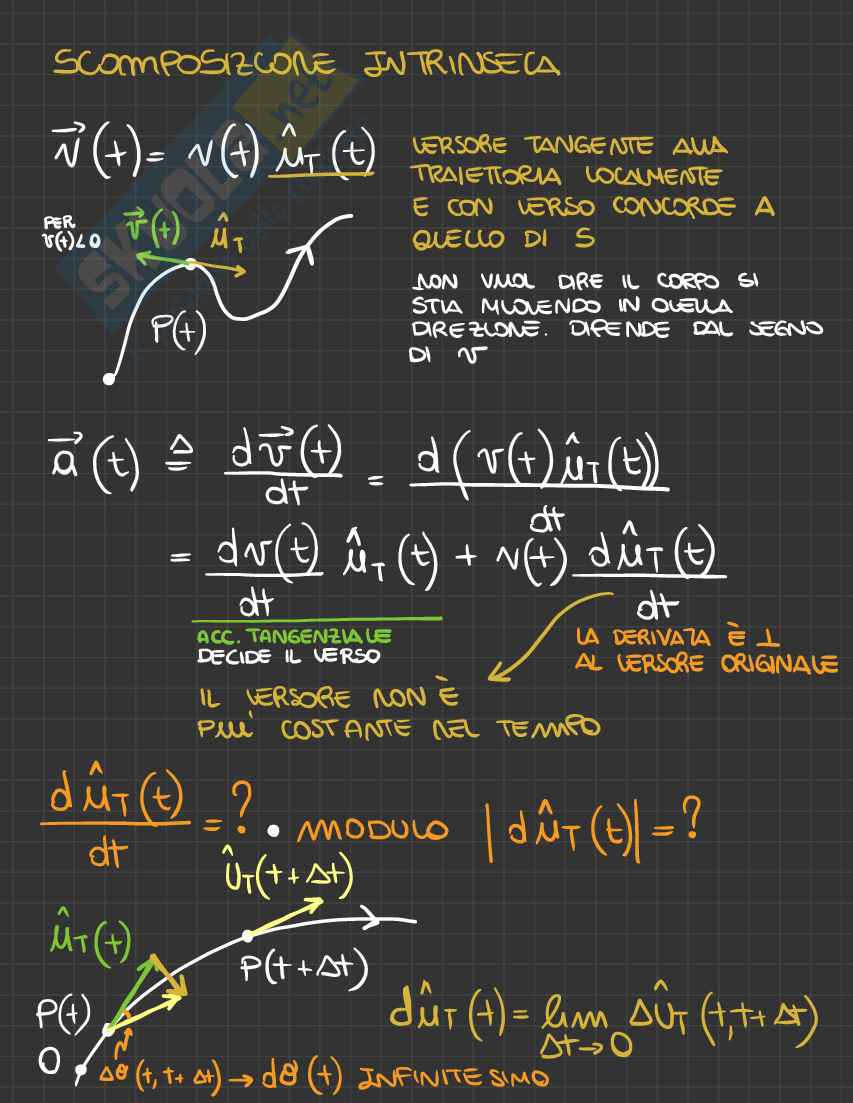 SCOMPOSIZIONE INTRINSECA
v⃗(t) = v(t) û_T(t)
VERSORE TANGENTE ALLA
TRAIETTORIA LOCALMENTE
E CON VERSO CONCORDE A
QUELLO DI S
PER
v(t)<0
v⃗(t)
û_T
P(t)
NON VUOL DIRE IL CORPO SI
STIA MUOVENDO IN QUELLA
DIREZIONE. DIPENDE DAL SEGNO
DI v
a⃗(t) ≜ dv⃗(t)/dt = d(v(t) û_T(t))/dt
= dv(t)/dt û_T(t) + v(t) dû_T(t)/dt
ACC. TANGENZIALE
DECIDE IL VERSO
LA DERIVATA È ⊥
AL VERSORE ORIGINALE
IL VERSORE NON È
PIU' COSTANTE NEL TEMPO
dû_T(t)/dt = ? • MODULO |dû_T(t)| = ?
û_T(t+Δt)
û_T(t)
P(t+Δt)
P(t)
O
dû_T(t) = lim Δt→0 Δû_T(t,t+Δt)
Δθ(t,t+Δt) → dθ(t) INFINITESIMO
SKUOLA.net